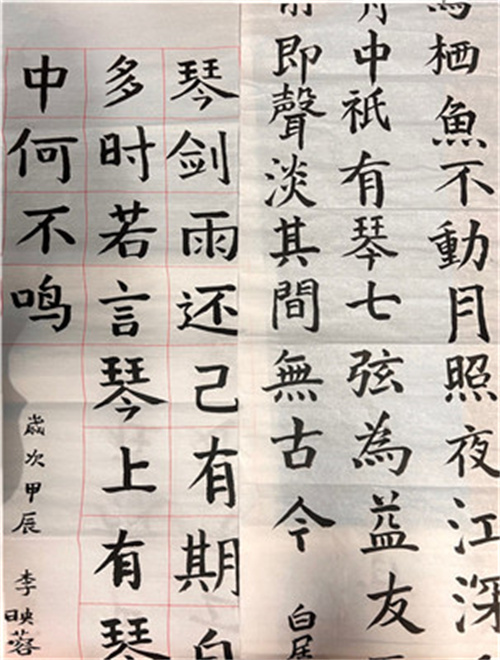 栖魚不動月照夜江深
中祇有琴七弦為益友
即聲淡其間無古今
白居
琴剑雨还己有期
多时若言琴上有琴
中何不鸣
歲次甲辰 李映蓉